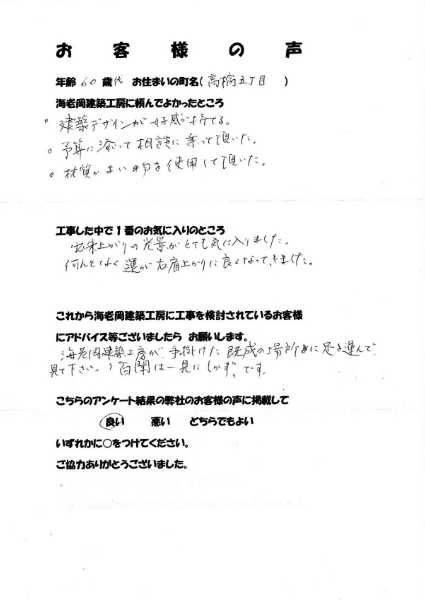 お客様の声
年齢 60 歳代 お住まいの町名(高橋五丁目 )
海老岡建築工房に頼んでよかったところ
。建築デザインが好感が持てる。
。予算に沿って相談に乗って頂いた。
。材質がよい物を使用して頂いた。
工事した中で1番のお気に入りのところ
出来上がりの光景がとても気に入りました。
何んとなく運が右肩上がりに良くなってきました。
これから海老岡建築工房に工事を検討されているお客様
にアドバイス等ございましたら お願いします。
海老岡建築工房が、手掛けた既成の場所めに足を運んで
見て下さい。)百聞は一見にしかず、です。
こちらのアンケート結果の弊社のお客様の声に掲載して
良い 悪い どちらでもよい
いずれかに○をつけてください。
ご協力ありがとうございました。